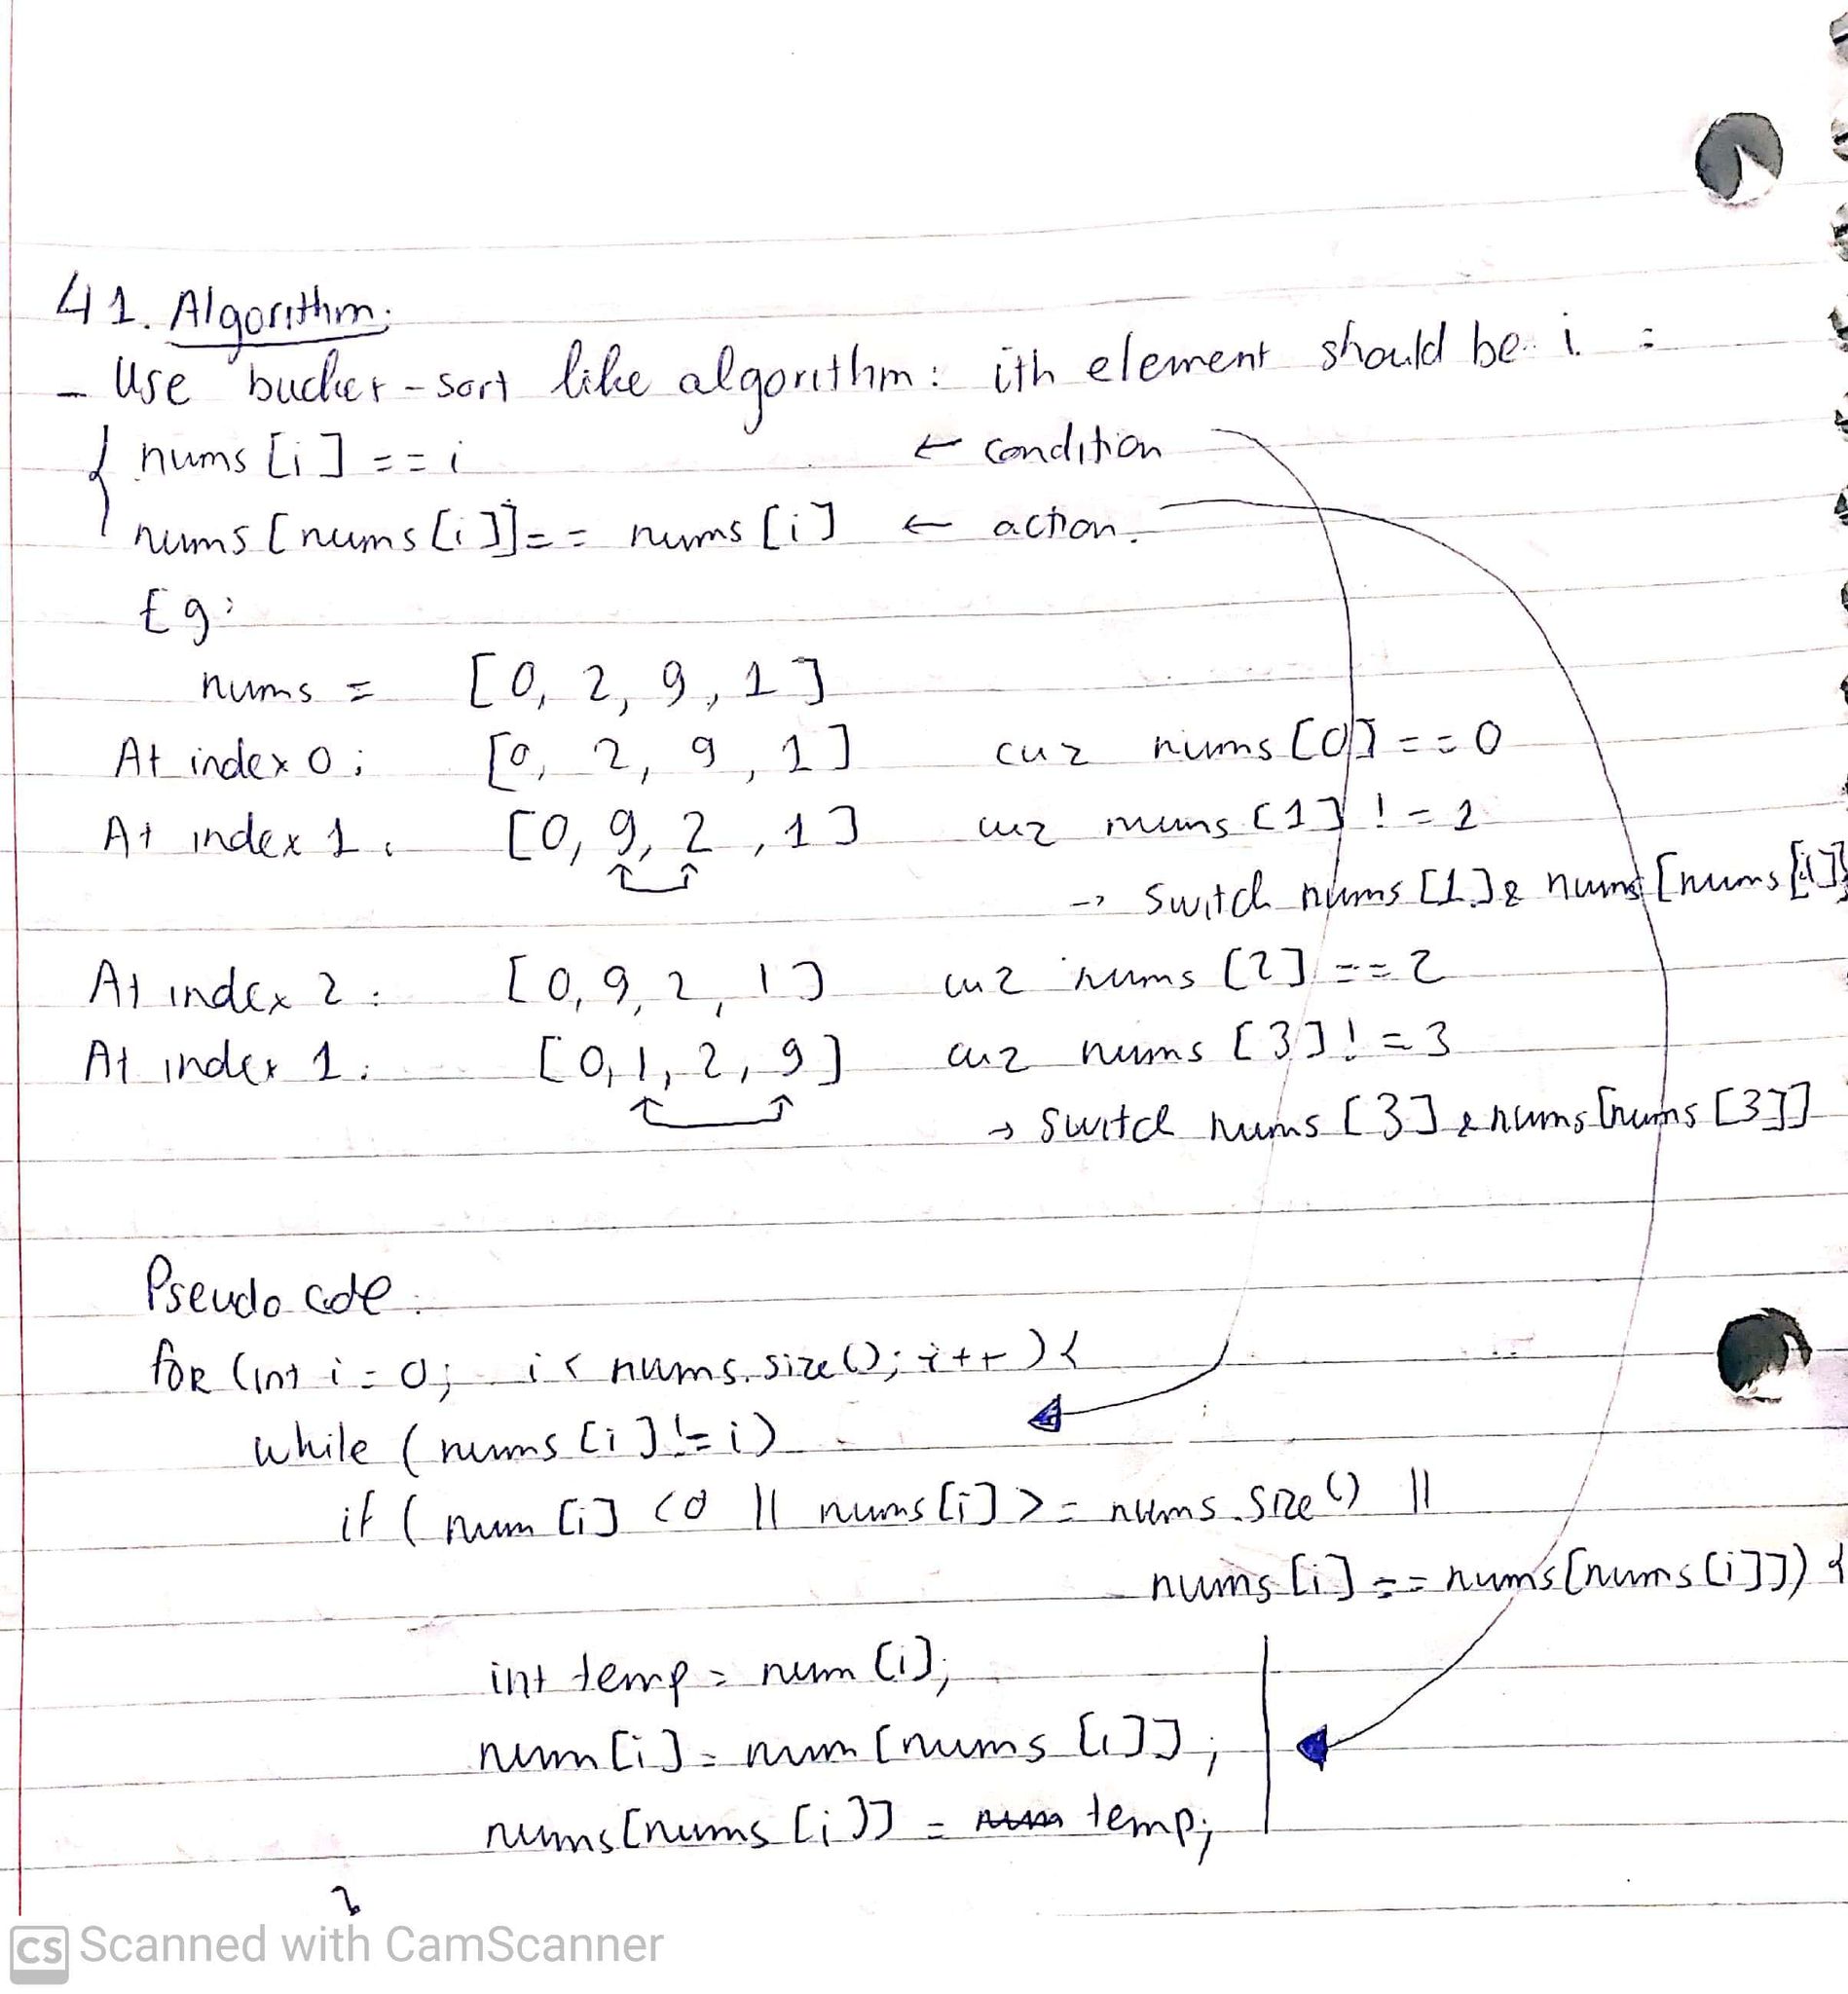 41. Algorithm:
- Use bucket-sort like algorithm: ith element should be i :
{ nums [i] == i ← condition
nums [nums [i]] == nums [i] ← action.
Eg:
nums = [0, 2, 9, 1]
At index 0: [0, 2, 9, 1] cuz nums [0] == 0
At index 1. [0, 9, 2, 1] cuz nums [1] != 1
→ switch nums [1] & nums [nums [1]]
At index 2: [0, 9, 2, 1] cuz nums [2] == 2
At index 1: [0, 1, 2, 9] cuz nums [3] != 3
→ switch nums [3] & nums [nums [3]]
Pseudo code.
for (int i = 0; i < nums.size(); i++) {
while (nums [i] != i)
if (num [i] < 0 || nums [i] >= nums.size() ||
nums [i] == nums [nums [i]]) {
int temp = num [i];
num [i] = num [nums [i]];
nums [nums [i]] = temp;
}
CS Scanned with CamScanner